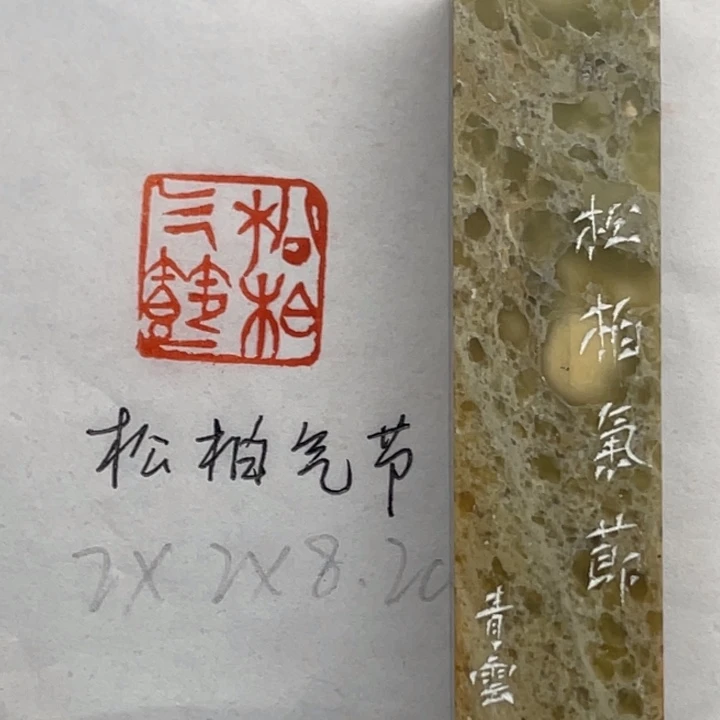 松柏
气節
松柏气节
2X2X8.2c
松柏氣莭
青雲